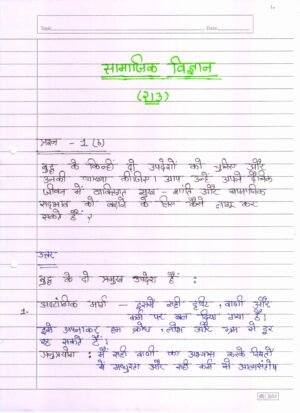 Topic
Date
सामाजिक विज्ञान
(213)
प्रश्न - 1 (b)
बुद्ध के किन्हीं दो उपदेशों को चुनिए और
उनकी व्याख्या कीजिए। आप उन्हें अपने दैनिक
जीवन में व्यक्तिगत सुख - शांति और सामाजिक
सद्भाव को बढ़ाने के लिए कैसे लागू कर
सकते हैं ?
उत्तर
बुद्ध के दो प्रमुख उपदेश हैं :
1. अष्टांगिक मार्ग — इसमें सही दृष्टि, वाणी और
कर्म पर बल दिया गया है।
इसे अपनाकर हम क्रोध, लोभ और भ्रम से दूर
रह सकते हैं।
अनुप्रयोग : मैं सही वाणी का अभ्यास करके रिश्तों
में मधुरता और सही कर्म से आत्मसंतोष